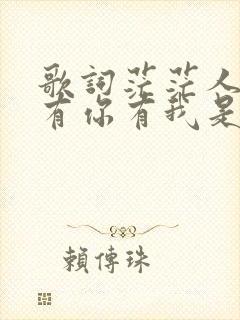 歌詞茫茫人
有你有我是
賴傳珠